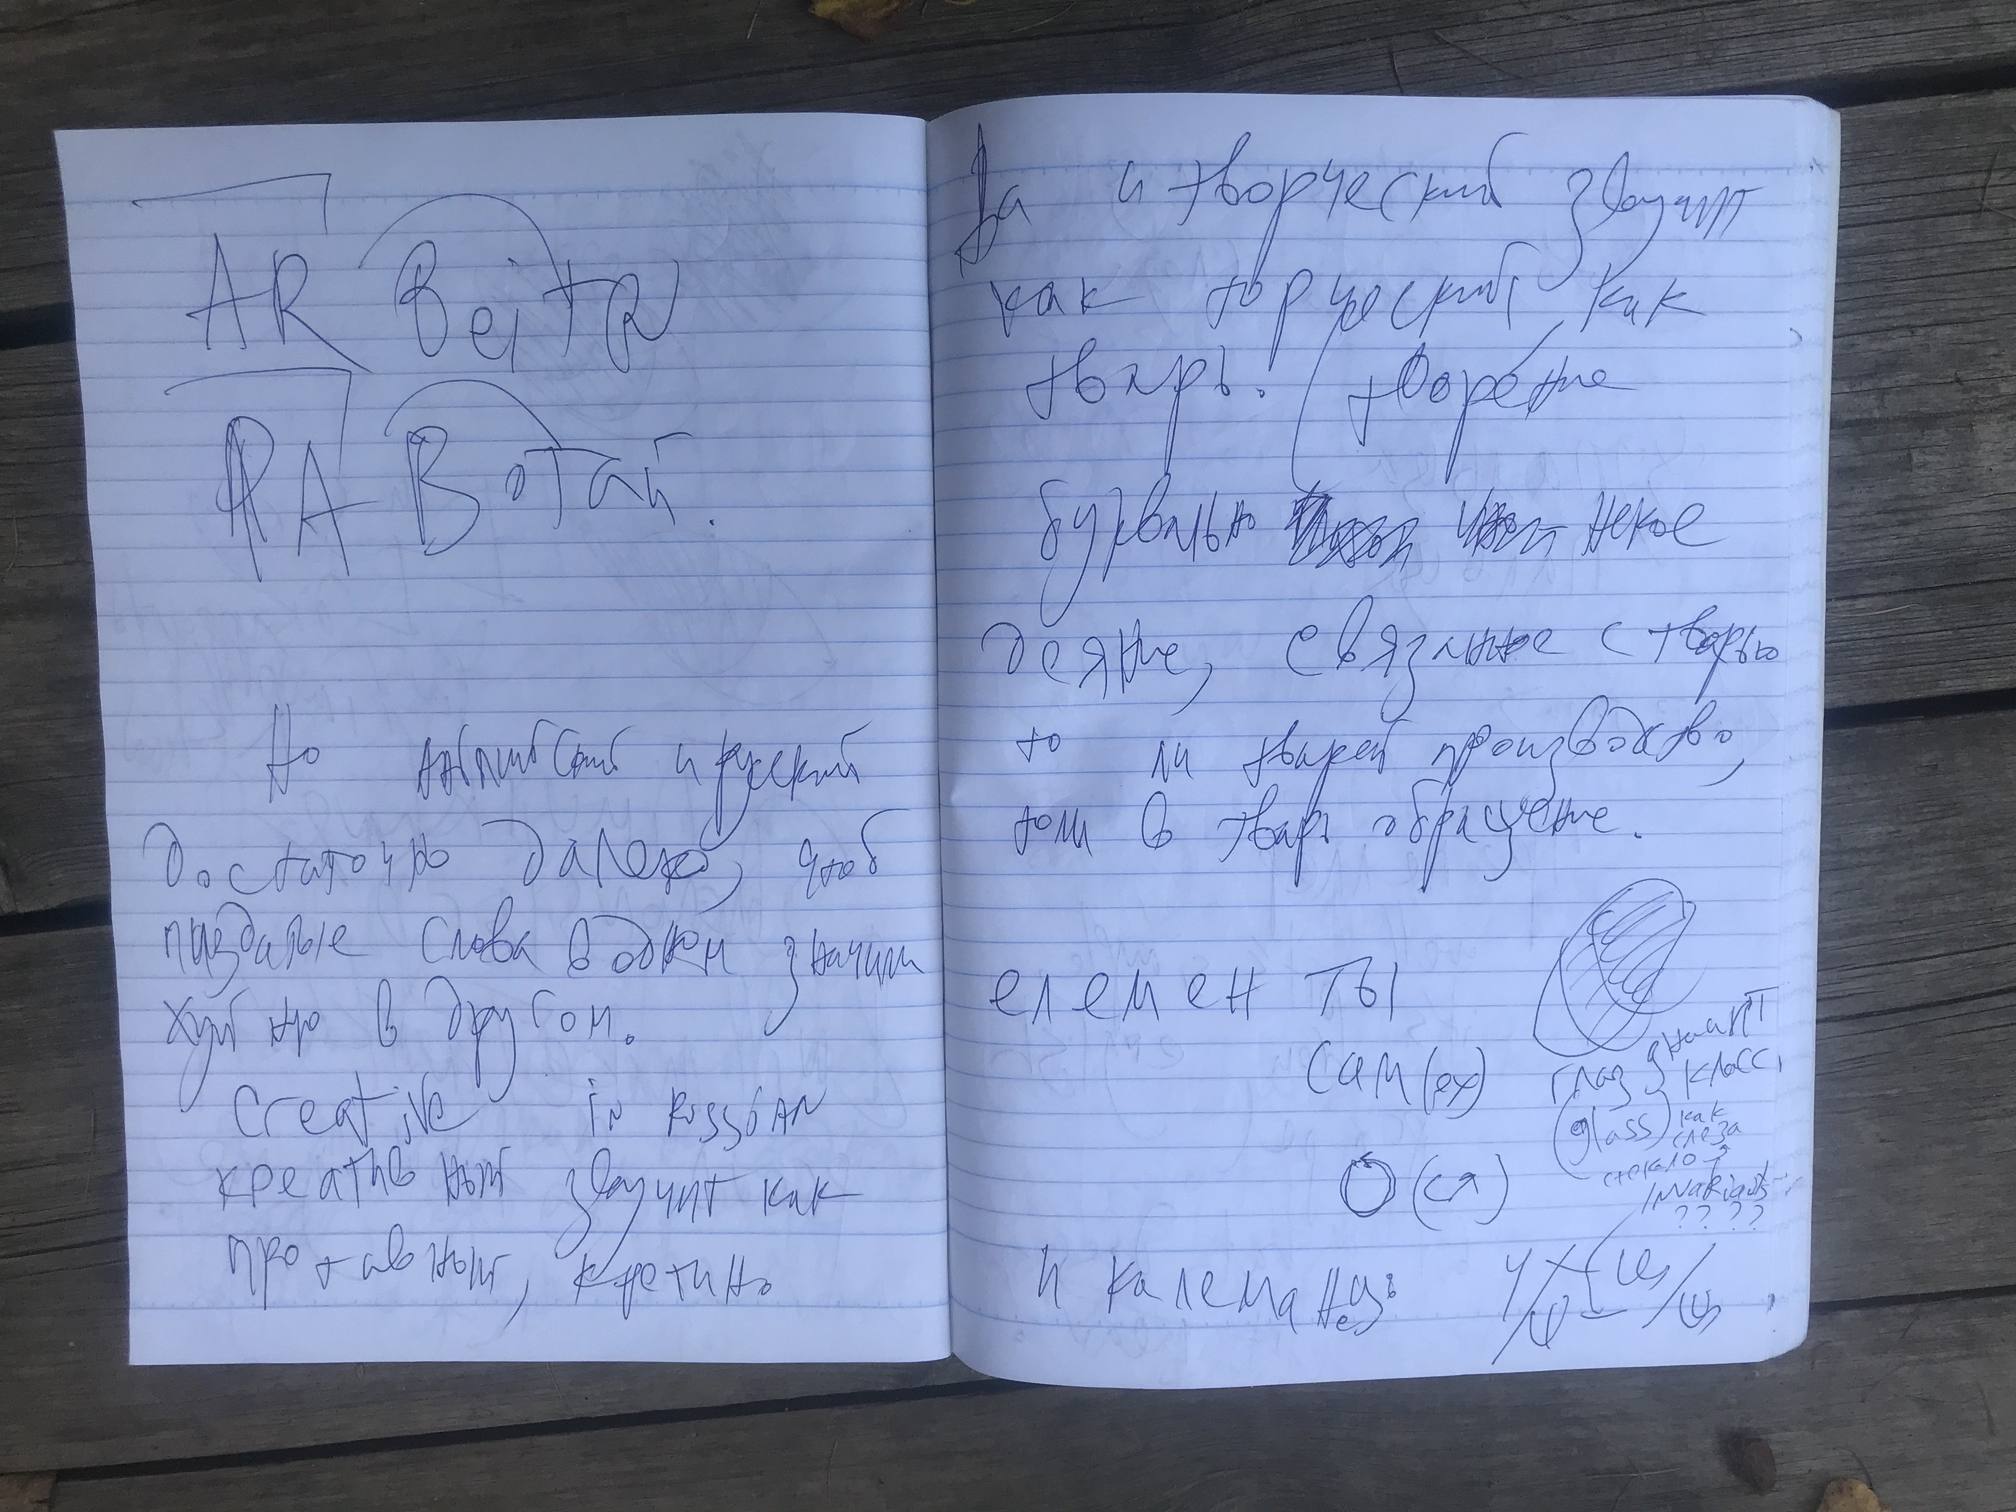 AR Beita
РА Вотай.
Но английский и русский
достаточно далеко, чтоб
пиздатые слова в одном значили
хуйню в другом.
Creative in Russian
креативный звучит как
противный, кретино
Да и творческий звучит
как творческий как
тварь. творение
буквально некое
деяние, связаное с тварью
то ли тварей производство,
толи в тварь обращение.
елемен ты
сам(ех)
глаз значит
класс,
(glass) как
слеза
стекло з
invariants
?? ??
О (ся)
и калеманец: